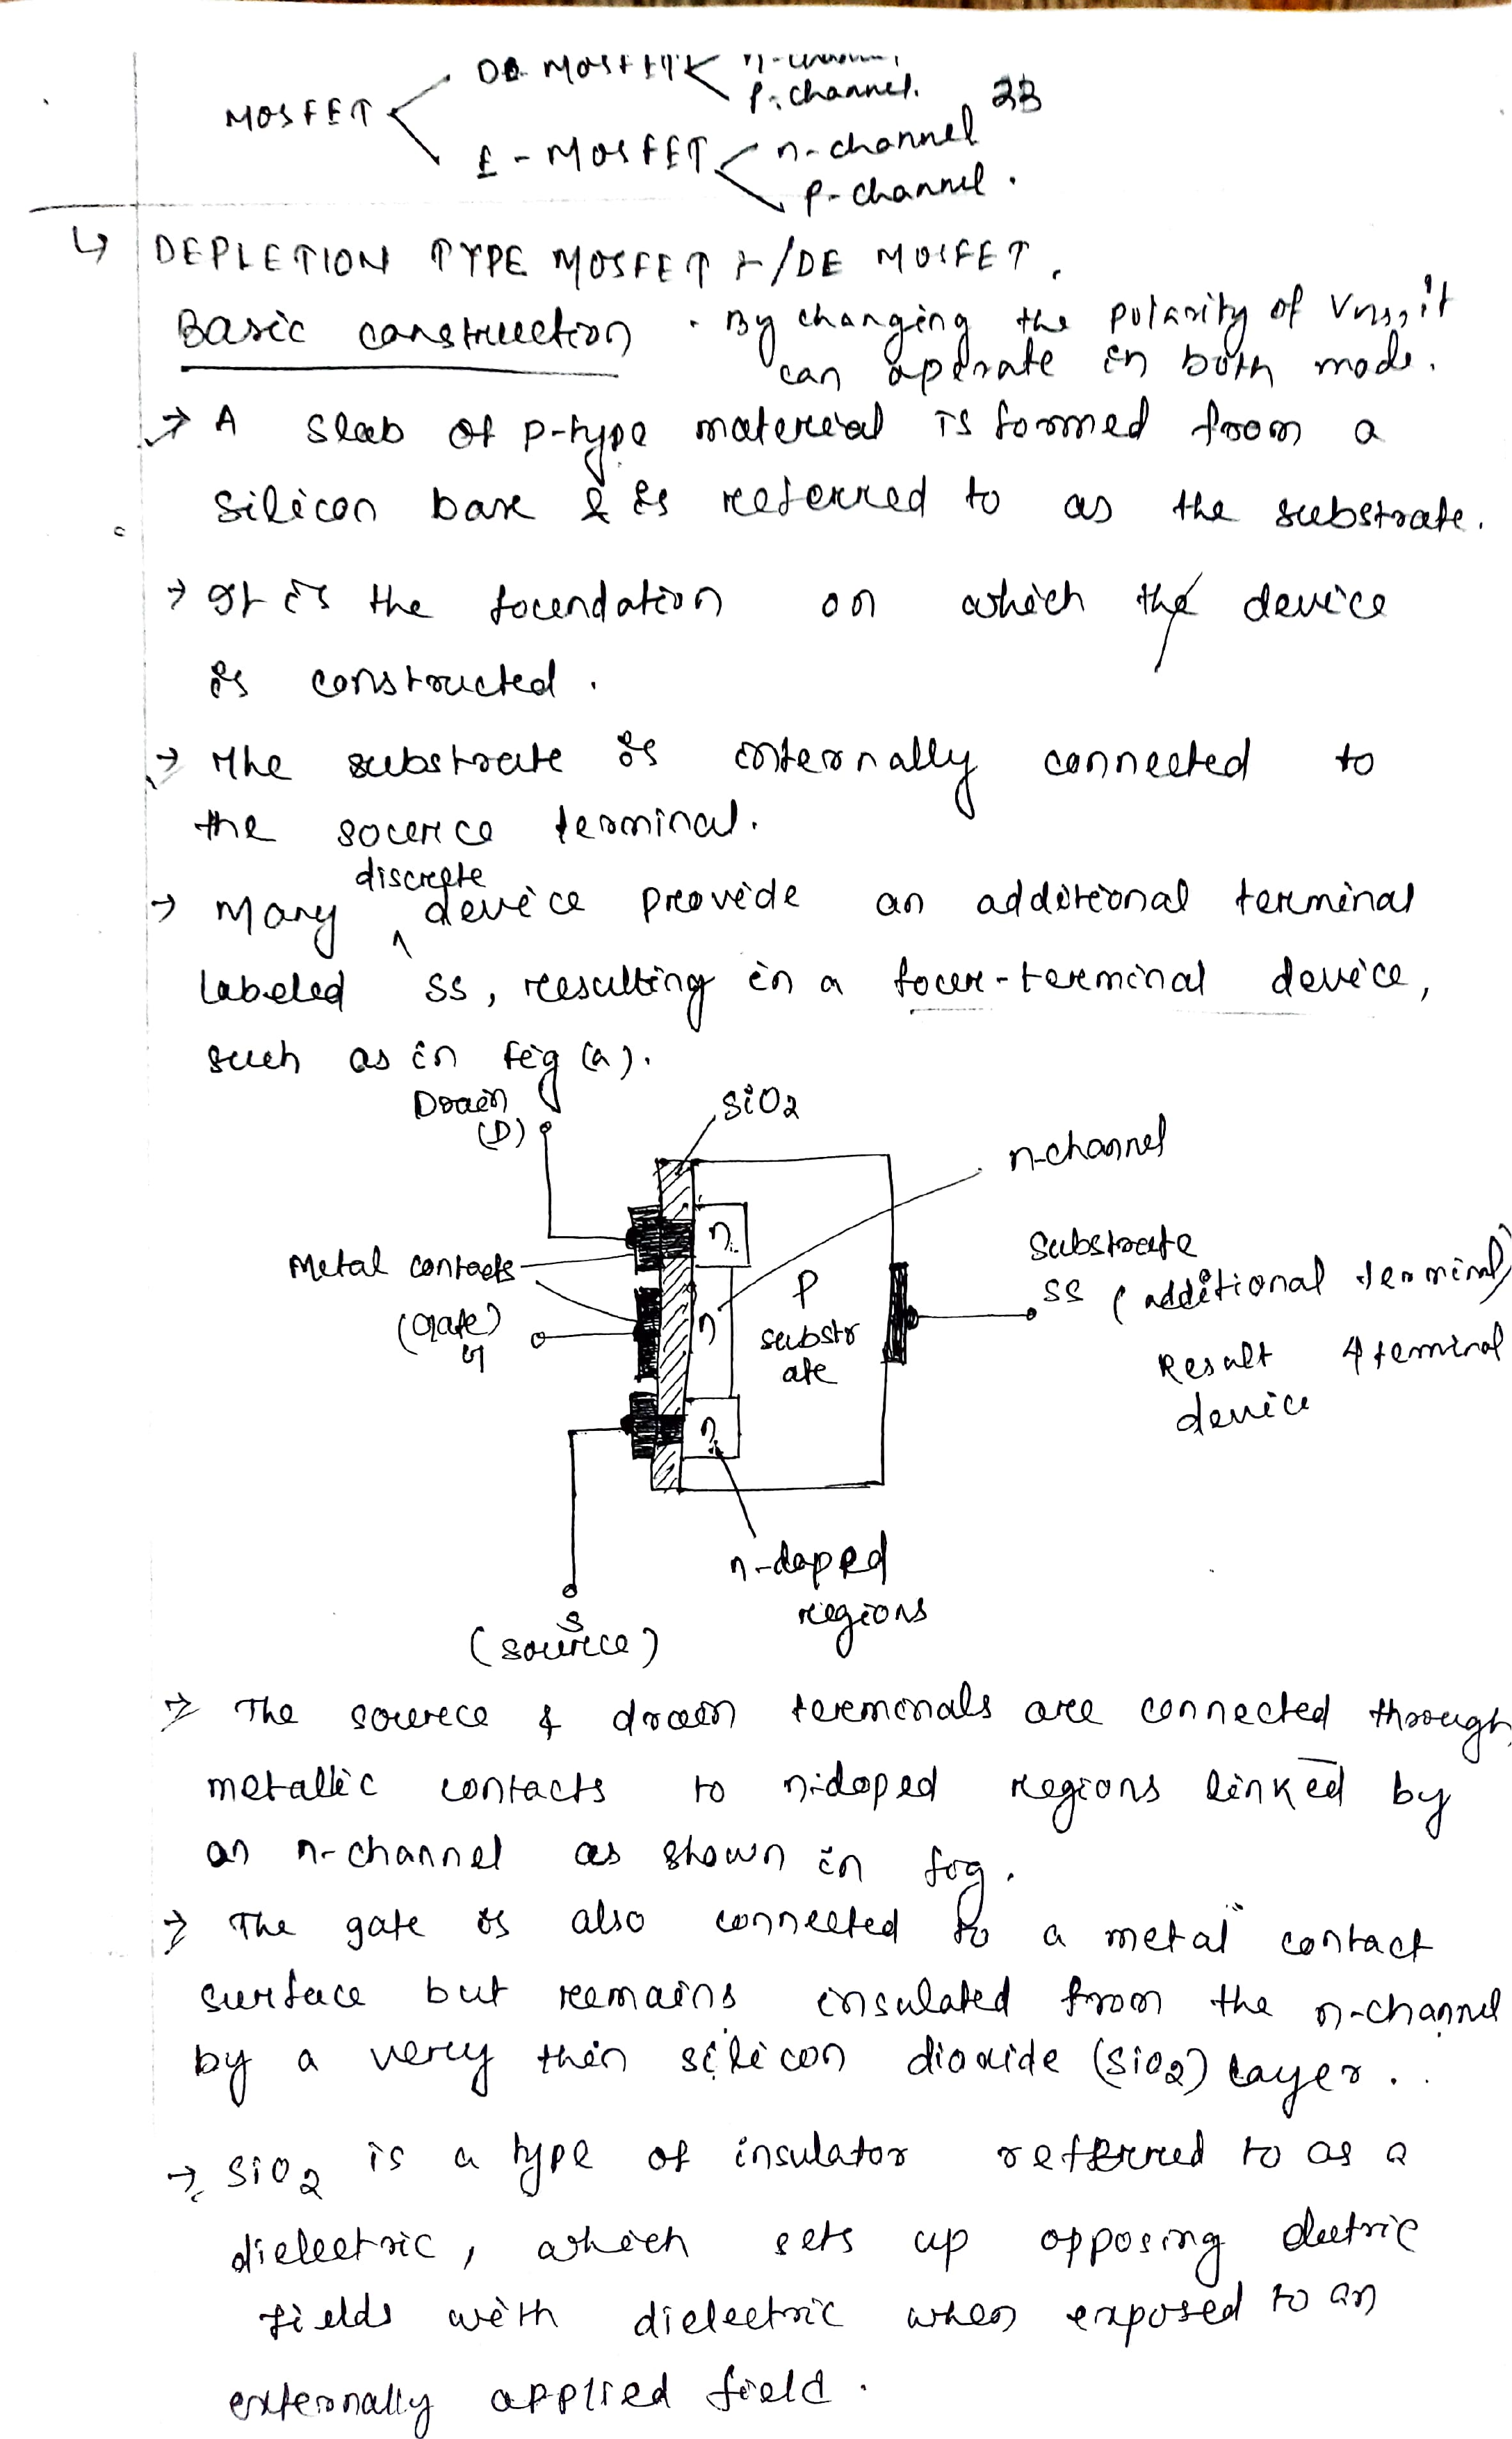 DE MOSFET n-channel
p-channel.
MOSFET
33
E - MOSFET n-channel
p-channel.
↳ DEPLETION TYPE MOSFET :-/DE MOSFET.
Basic construction . By changing the polarity of VGS, it
can operate in both mode.
→ A slab of p-type material is formed from a
silicon base & is referred to as the substrate.
→ It is the foundation on which the device
is constructed.
→ The substrate is internally connected to
the source terminal.
discrete
→ Many ^ device provide an additional terminal
labeled SS, resulting in a four-terminal device,
such as in fig (a).
Drain
(D)
SiO2
n-channel
n
Metal contacts
(Gate)
G
n
P
substr
ate
Substrate
SS (additional terminal)
Result 4 teminal
device
n
n-doped
regions
S
(source)
→ The source & drain terminals are connected through
metallic contacts to n-doped regions linked by
an n-channel as shown in fig.
→ The gate is also connected to a metal contact
surface but remains insulated from the n-channel
by a very thin silicon dioxide (SiO2) layer.
→ SiO2 is a type of insulator referred to as a
dielectric, which sets up opposing electric
fields with dielectric when exposed to an
externally applied field.